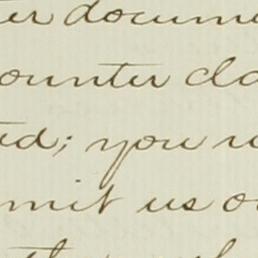 er docume
ounter cla
ed; you w
mit us o